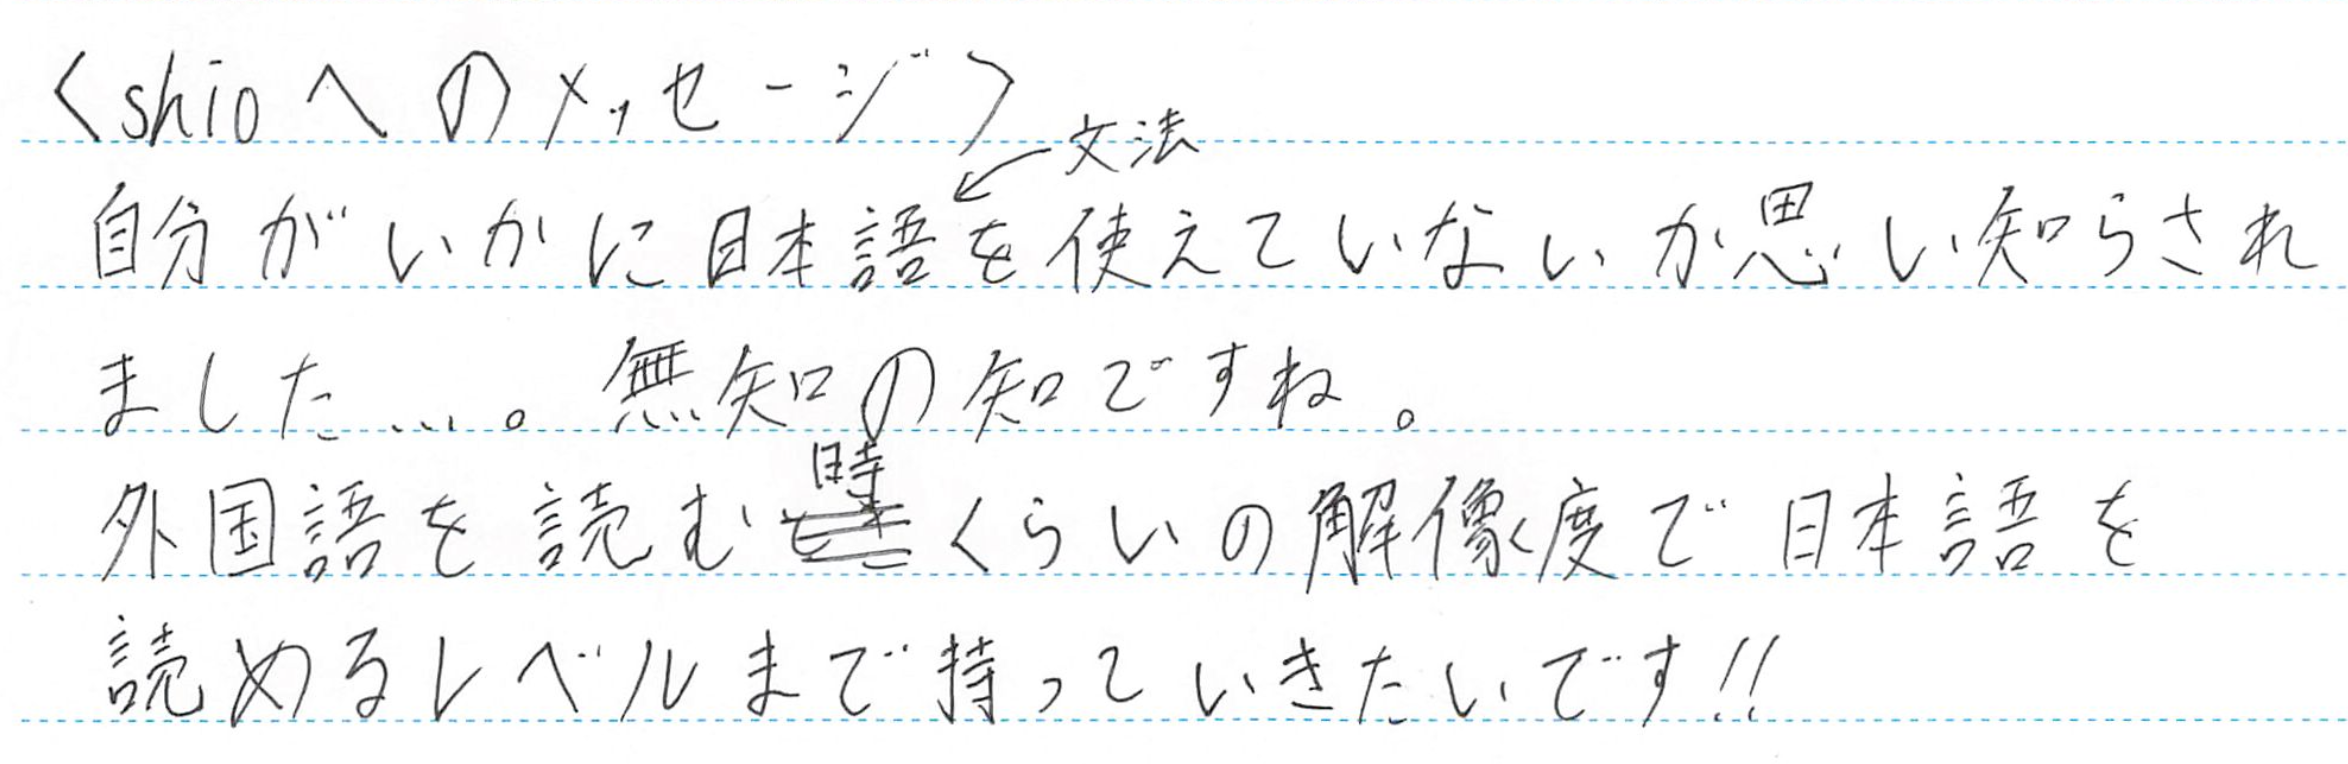 <shioへのメッセージ>
文法
自分がいかに日本語を使えていないか思い知らされ
ました…。無知の知ですね。
時
外国語を読むくらいの解像度で日本語を
読めるレベルまで持っていきたいです!!